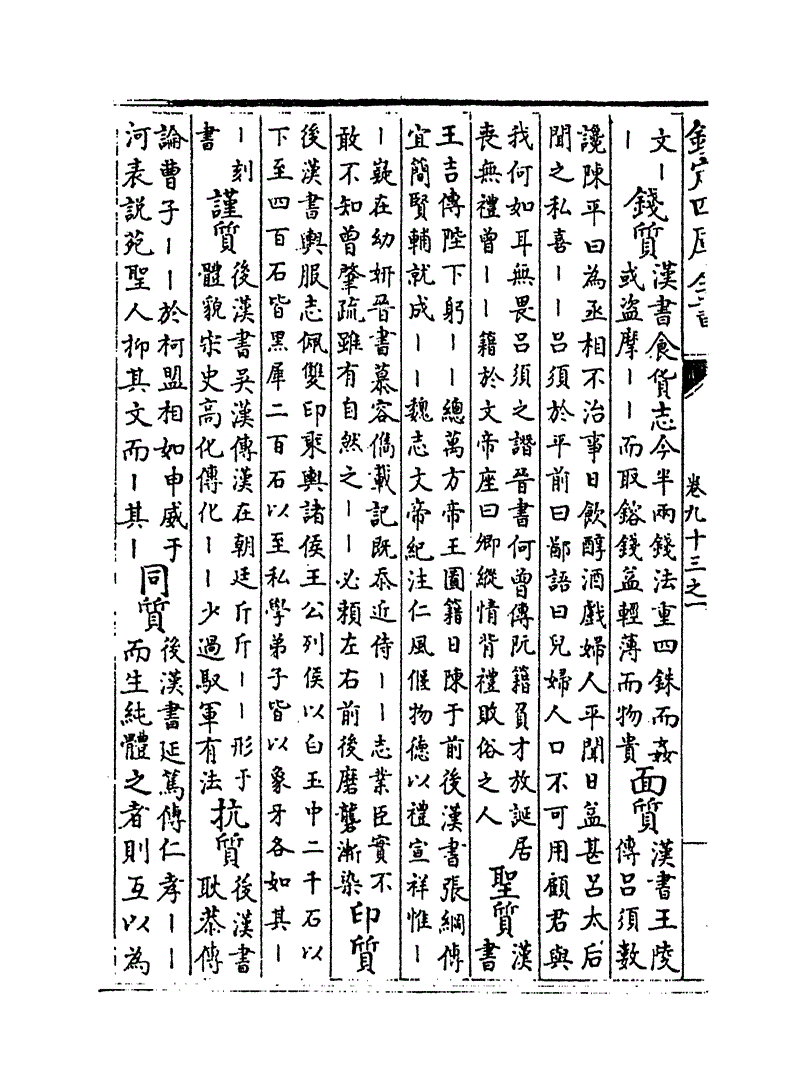 欽定四庫全書
卷九十三之一
文丨
丨
錢質
漢書食貨志今半兩錢法重四銖而姦
或盜摩丨丨而取鎔錢益輕薄而物貴
面質
漢書王陵
傳吕須數
讒陳平曰為丞相不治事日飲醇酒戲婦人平聞日益甚吕太后
聞之私喜丨丨吕須於平前曰鄙語曰兒婦人口不可用顧君與
我何如耳無畏吕須之譖晉書何曾傳阮籍負才放誕居
喪無禮曾丨丨籍於文帝座曰卿縱情背禮敗俗之人
聖質
漢
書
王吉傳陛下躬丨丨總萬方帝王圖籍日陳于前後漢書張綱傳
宜簡賢輔就成丨丨魏志文帝紀注仁風偃物德以禮宣祥惟丨
丨嶷在幼妍晉書慕容儁載記既忝近侍丨丨志業臣實不
敢不知曾肇疏雖有自然之丨丨必賴左右前後磨礲漸染
印質
後漢書輿服志佩雙印乘輿諸侯王公列侯以白玉中二千石以
下至四百石皆黑犀二百石以至私學弟子皆以象牙各如其丨
丨刻
書
謹質
後漢書吳漢傳漢在朝廷斤斤丨丨形于
體貌宋史高化傳化丨丨少過馭軍有法
抗質
後漢書
耿恭傳
論曹子丨丨於柯盟相如申威于
河表說苑聖人抑其文而丨其丨
同質
後漢書延篤傳仁孝丨丨
而生純體之者則互以為